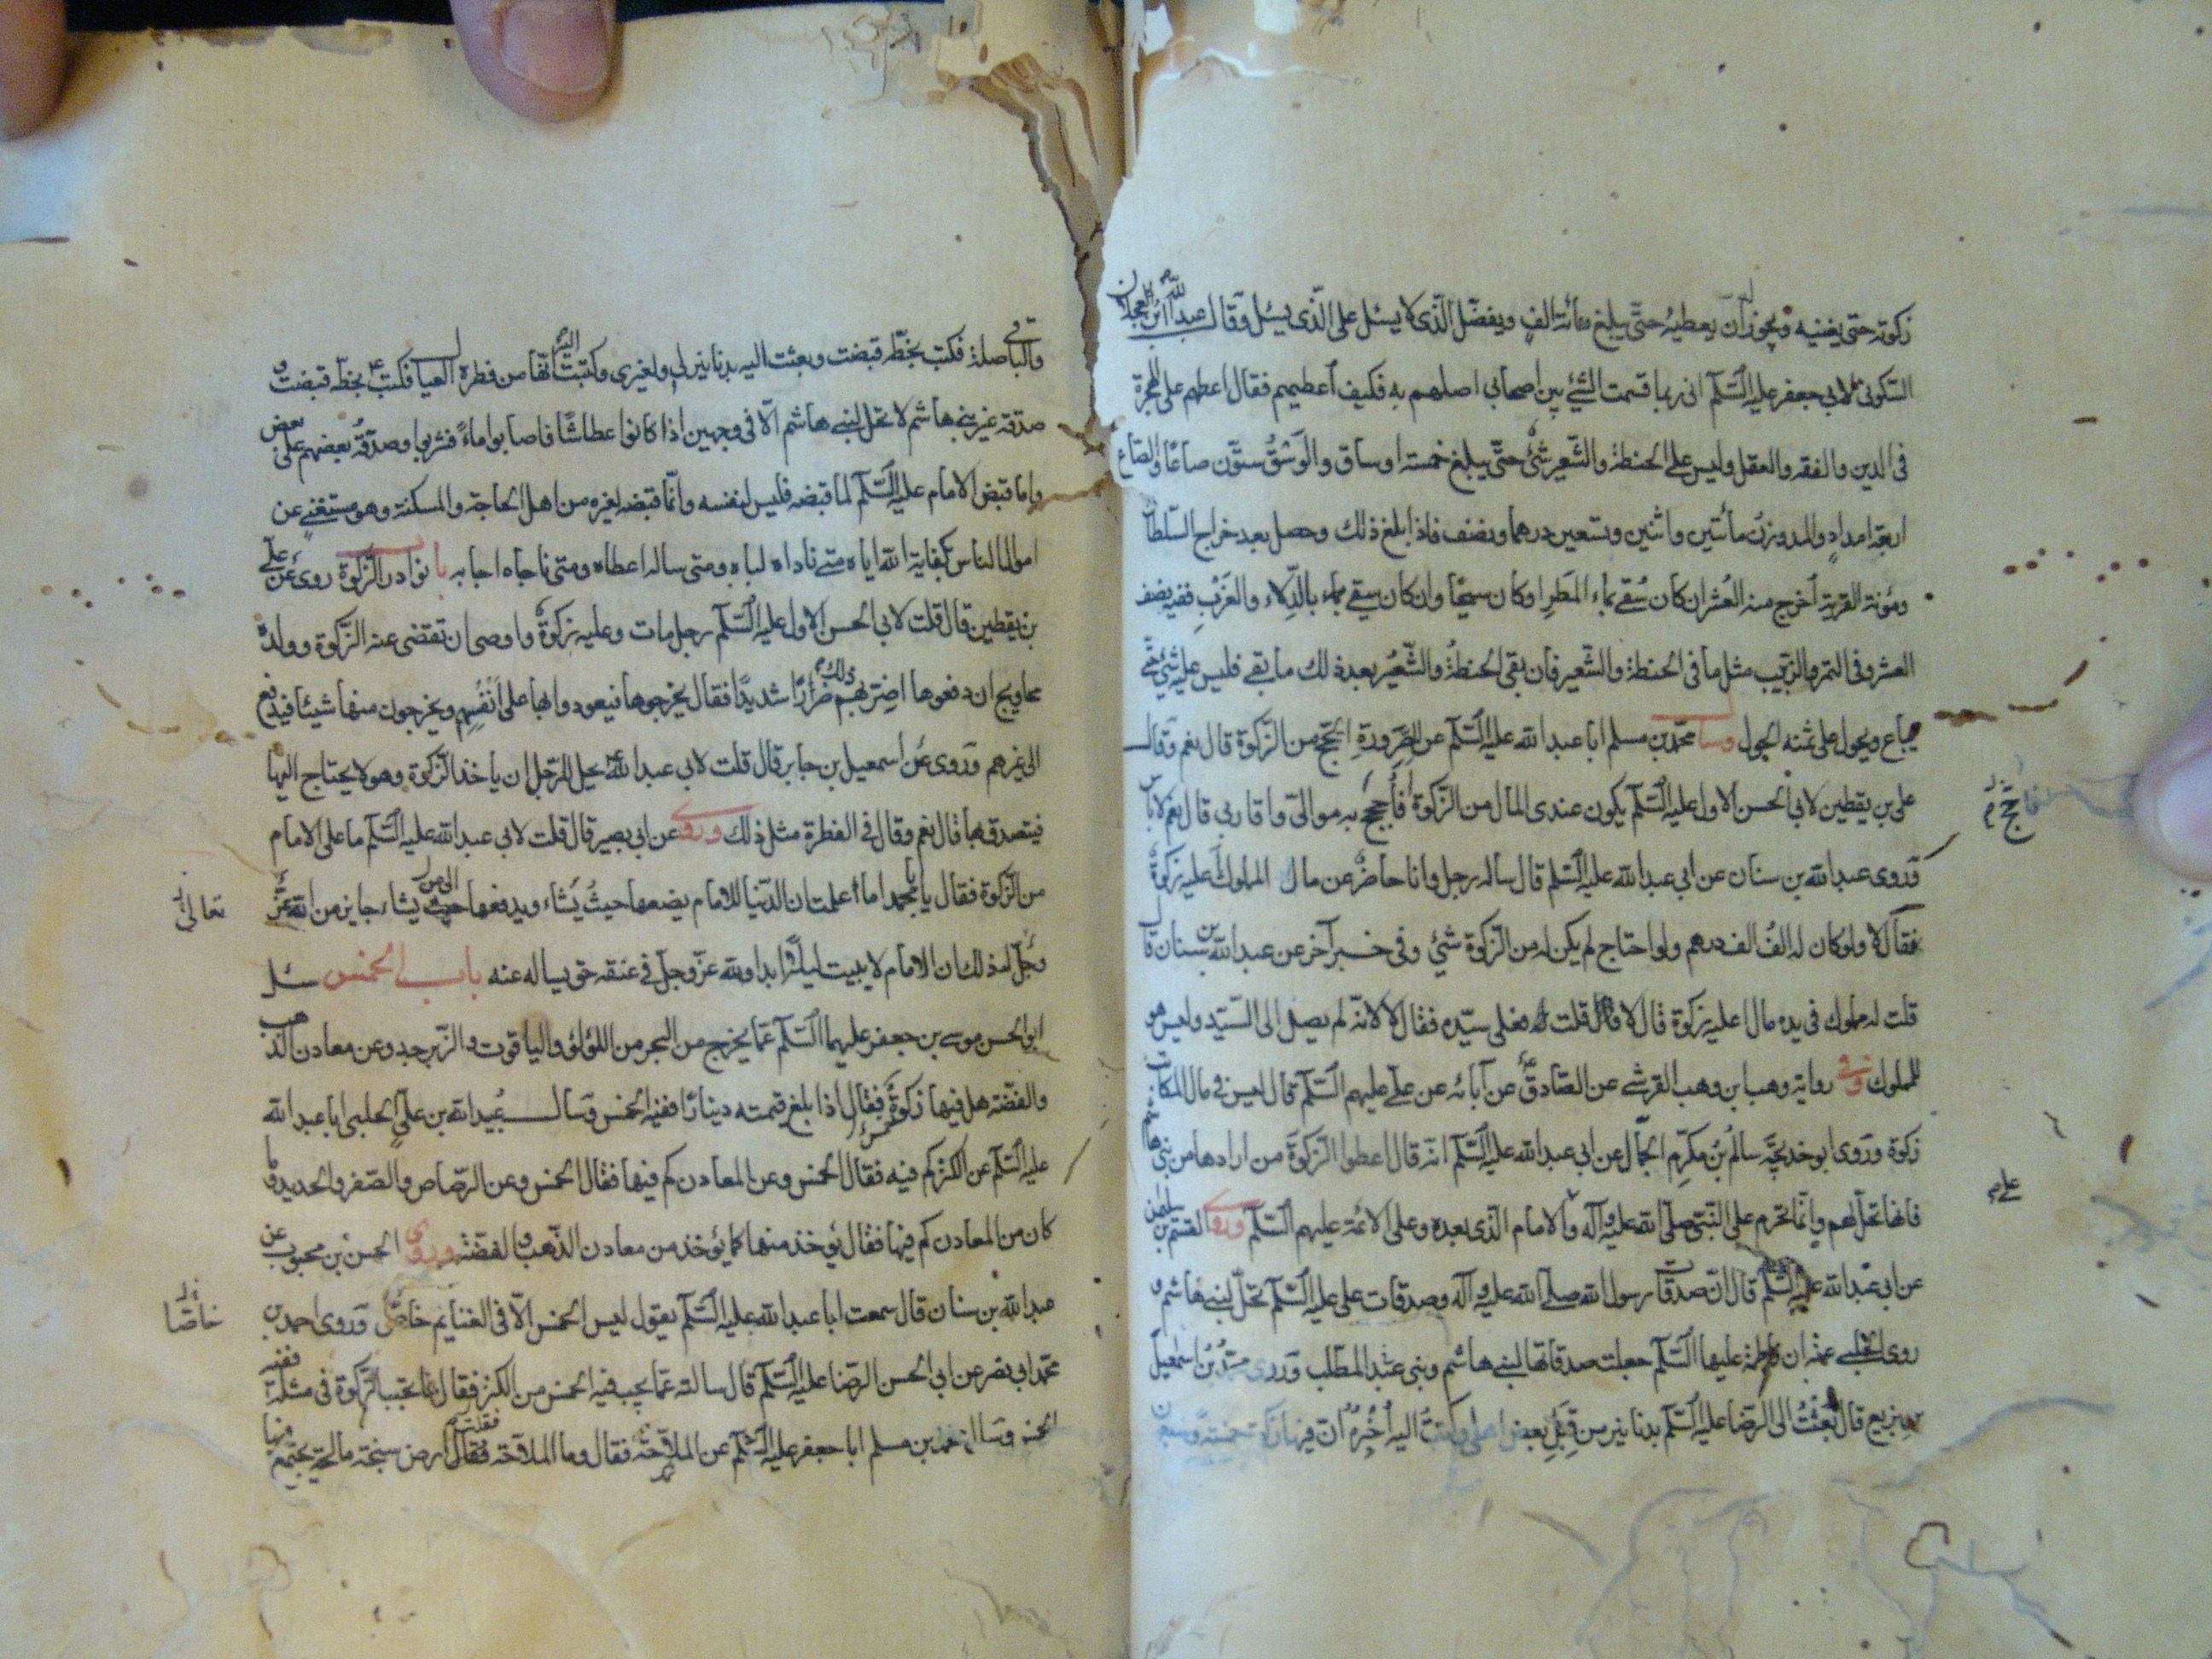 زكوته حتى يغنيه ويجوز له ان يعطيه حتى يبلغ مائة الف ويفضل الذى لا يسئل على الذى يسئل وقال عبد الله بن العجلان
السكونى لابى جعفر عليه السلم انى ربما قسمت الشئ بين اصحابى اصلهم به فكيف اعطيهم فقال اعطهم على الهجرة
فى الدين والفقه والعقل وليس على الحنطة والشعير شئ حتى يبلغ خمسة اوساق والوسق ستون صاعا والصاع
اربعة امداد والمد وزن مأتين واثنين وتسعين درهما ونصف فاذا بلغ ذلك وحصل بعد خراج السلطان
ومؤنة القرية اخرج منه العشر ان كان سقى بماء المطر او كان سيحا وان كان سقى بماء بالدلاء والغرب ففيه نصف
العشر وفى التمر والزبيب مثل ما فى الحنطة والشعير فان بقى الحنطة والشعير بعد ذلك ما بقى فليس عليه شئ حتى
يباع ويحول على ثمنه الحول وسأل محمد بن مسلم ابا عبد الله عليه السلم عن الضرورة ايحج من الزكوة قال نعم وقال
على بن يقطين لابى الحسن الاول عليه السلم يكون عندى المال من الزكوة فأحج به موالى واقاربى قال نعم لا باس
وروى عبد الله بن سنان عن ابى عبد الله عليه السلم قال ساله رجل وانا حاضر عن مال المملوك عليه زكوة
فقال لا ولو كان له الف الف درهم ولو احتاج لم يكن له من الزكوة شئ وفى خبر آخر عن عبد الله بن سنان قال
قلت له مملوك فى يده مال اعليه زكوة قال لا قال قلت فعلى سيده فقال لا لانه لم يصل الى السيد وليس هو
للمملوك وفى رواية وهب بن وهب القرشى عن الصادق عن آبائه عن على عليهم السلم قال ليس فى مال المكاتب
زكوة وروى ابو خديجة سالم بن مكرم الجمال عن ابى عبد الله عليه السلم انه قال اعطوا الزكوة من ارادها من بنى هاشم
فانها تحل لهم وانما تحرم على النبى صلى الله عليه وآله والامام الذى بعده وعلى الائمة عليهم السلم وروى القسم بن سليمن
عن ابى عبد الله عليه السلم قال ان صدقات رسول الله صلى الله عليه وآله وصدقات على عليه السلم تحل لبنى هاشم و
روى الحلبى عنه ان فاطمة عليها السلم جعلت صدقاتها لبنى هاشم وبنى عبد المطلب وروى محمد بن اسمعيل
بن بزيع قال بعثت الى الرضا عليه السلم بدنانير من قبل بعض اهلى وكتبت اليه اخبره ان فيها زكوة خمسة وسبعين
فاحج م
على م
والباقى صلة فكتب بخطه قبضت وبعثت اليه بدنانير لى ولغيرى وكتبت اليه انها من فطرة العيال فكتب ع بخطه قبضت و
صدقة غير بنى هاشم لا تحل لبنى هاشم الا فى وجهين اذا كانوا عطاشا فاصابوا ماء فشربوا وصدقة بعضهم على بعض
واما قبض الامام عليه السلم لما قبضه فليس لنفسه وانما قبضه لغيره من اهل الحاجة والمسكنة وهو مستغنى عن
اموال الناس بكفاية الله اياه متى ناداه لباه ومتى ساله اعطاه ومتى ناجاه اجابه باب نوادر الزكوة روى عن على
بن يقطين قال قلت لابى الحسن الاول عليه السلم رجل مات وعليه زكوة واوصى ان تقضى عنه الزكوة وولده
محاويج ان دفعوها اضر ذلك بهم ضررا شديدا فقال يخرجوها فيعودوا بها على انفسهم ويخرجون منها شيئا فيدفع
الى غيرهم وروى عن اسمعيل بن جابر قال قلت لابى عبد الله ع يحل للرجل ان ياخذ الزكوة وهو لا يحتاج اليها
فيتصدق بها قال نعم وقال فى الفطرة مثل ذلك وروى عن ابى بصير قال قلت لابى عبد الله عليه السلم ما على الامام
من الزكوة فقال يا با محمد اما علمت ان الدنيا للامام يضعها حيث يشاء ويدفعها الى من يشاء جايز من الله عز
وجل له ذلك ان الامام لا يبيت ليلة ابدا ولله عز وجل فى عنقه حق يساله عنه باب الخمس سئل
ابو الحسن موسى بن جعفر عليهما السلم عما يخرج من البحر من اللؤلؤ والياقوت والزبرجد وعن معادن الذهب
والفضة هل فيها زكوة فقال اذا بلغ قيمته دينارا ففيه الخمس وسال عبيد الله بن على الحلبى ابا عبد الله
عليه السلم عن الكنز كم فيه فقال الخمس وعن المعادن كم فيها فقال الخمس وعن الرصاص والصفر والحديد وما
كان من المعادن كم فيها فقال يؤخذ منها كما يؤخذ من معادن الذهب والفضة وروى الحسن بن محبوب عن
عبد الله بن سنان قال سمعت ابا عبد الله عليه السلم يقول ليس الخمس الا فى الغنايم خاصة وروى احمد بن
محمد ابى نصر عن ابى الحسن الرضا عليه السلم قال سالته عما يجب فيه الخمس من الكنز فقال ما تجب الزكوة فى مثله ففيه
الخمس وسال محمد بن مسلم ابا جعفر عليه السلم عن الملاحة فقال وما الملاحة فقلت ارض سبخة مالحة يجتمع فيها
تعالى
خاصا